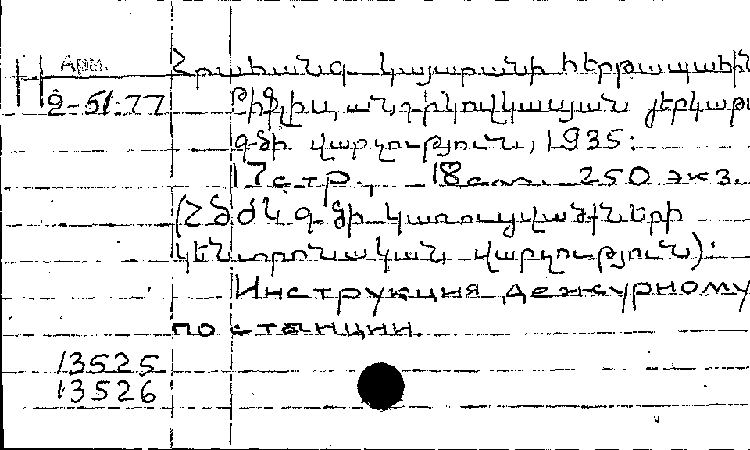 Арм.
Հրահանգ կայարանի հերթապահին
9-51:77
Թիֆլիս, անդրկովկասյան յերկաթու
գծի վարչություն, 1935:
17 стр., 18 см. 250 экз.
(ՀՖԺԿ գծի կառուցվածքների
կենտրոնական վարչություն):
Инструкция дежурному
по станции.
13525
13526